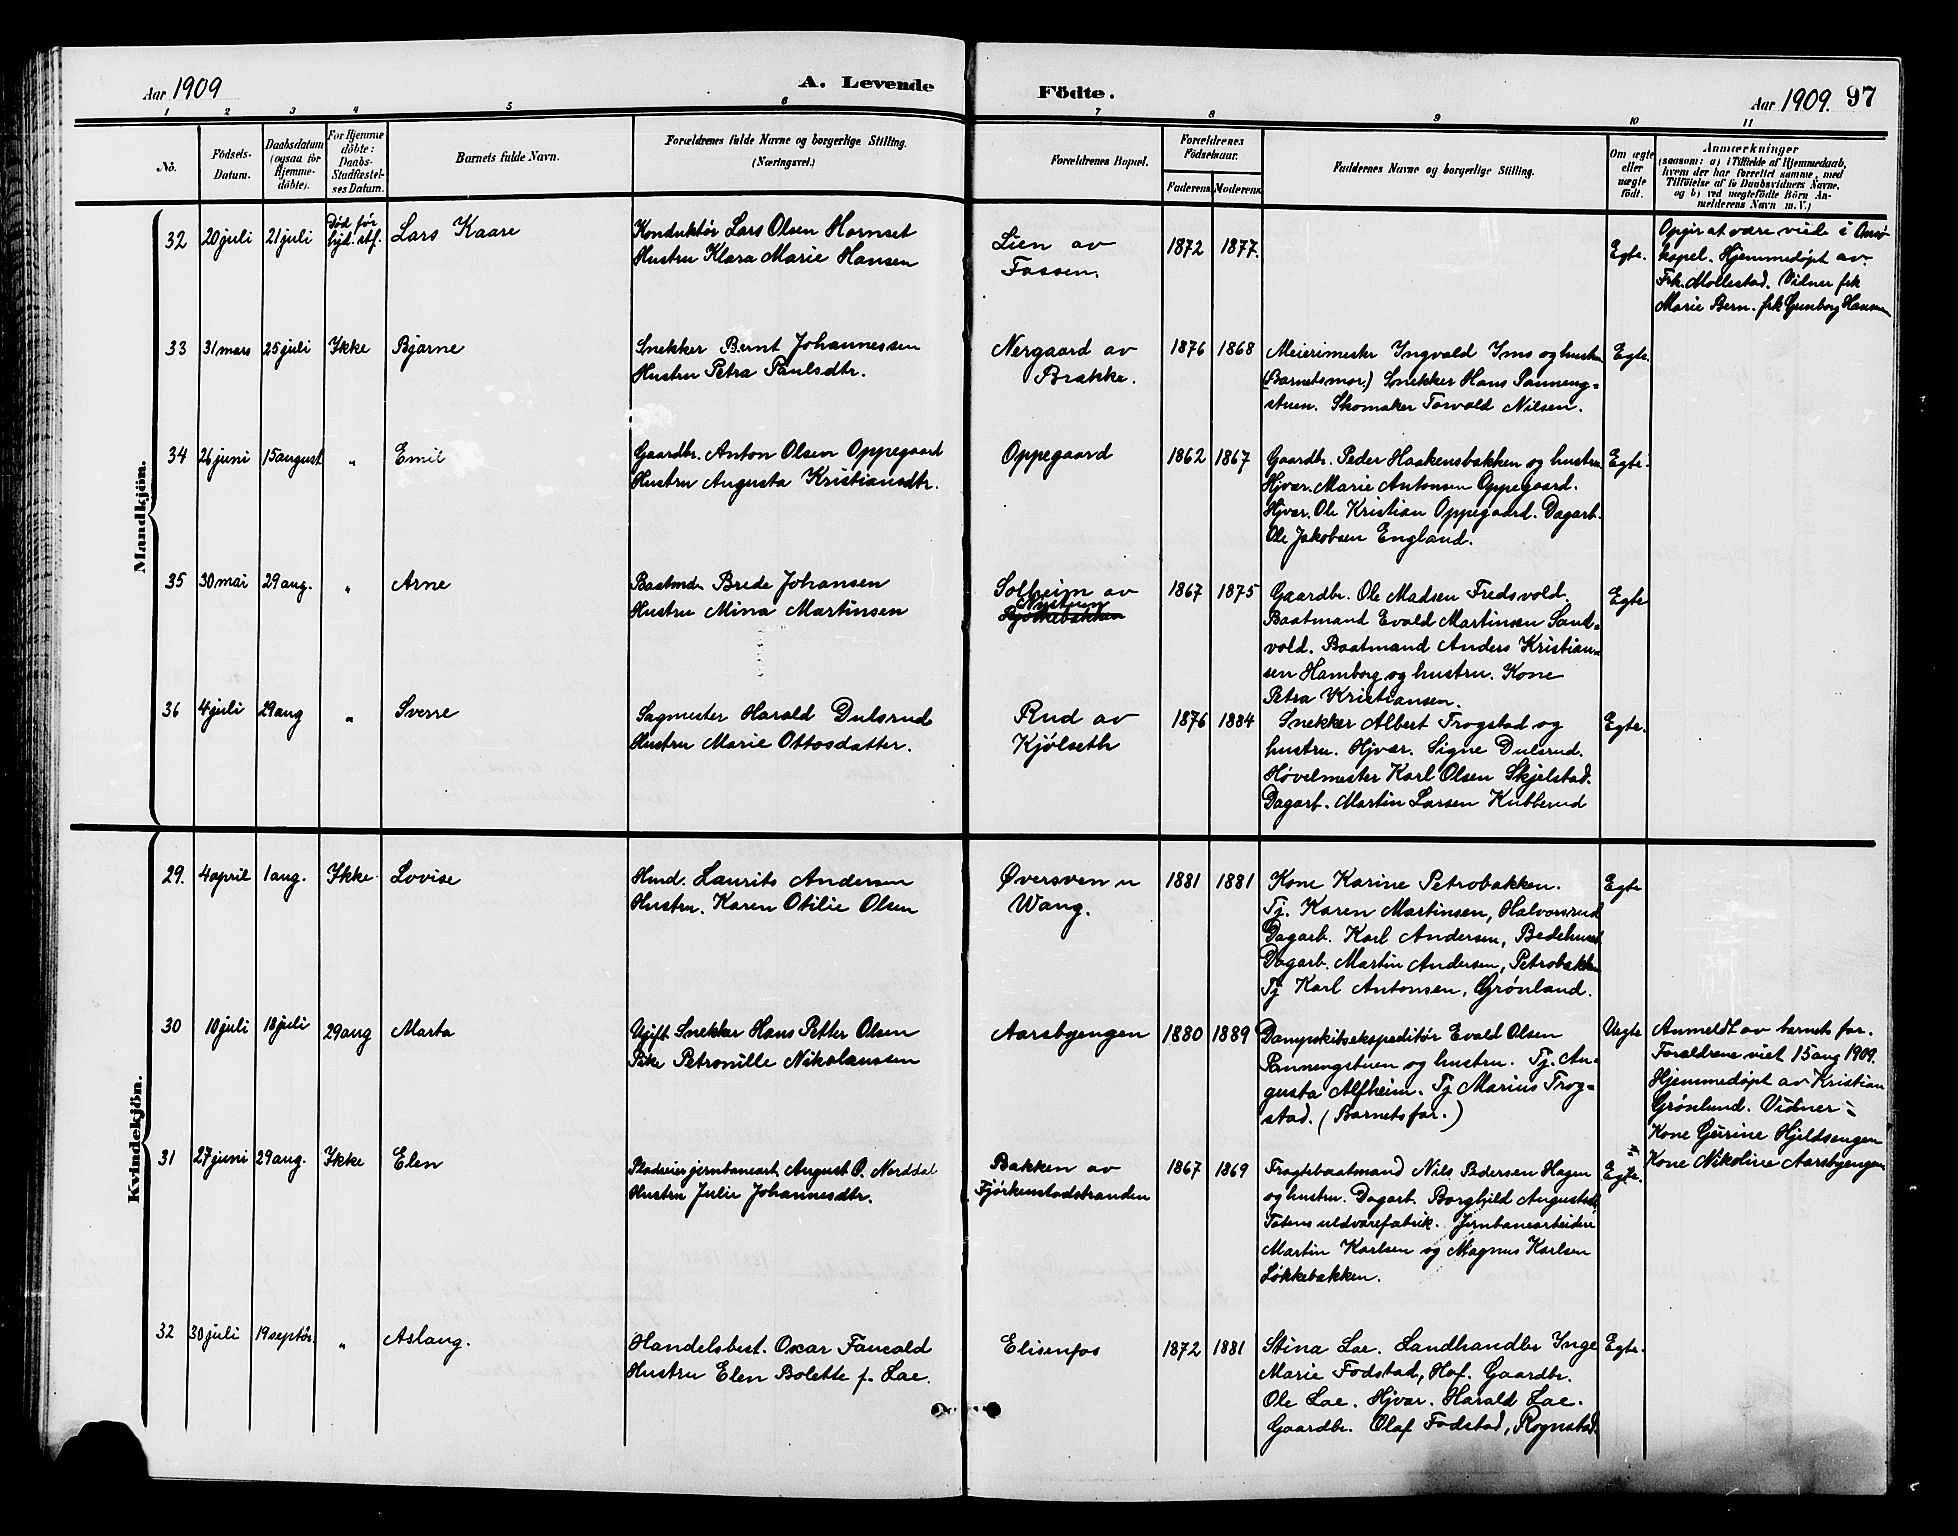 Aar 1909
A. Levende
Födte.
Aar 1909. 97
1 2 3 4 5 6 7 8 9 10 11
No.
Födsels-
Datum.
Daabsdatum
(ogsaa for
Hjemme-
döbte).
For Hjemme
döbte:
Daabs-
Stadfæstel-
ses Datum.
Barnets fulde Navn.
Forældrenes fulde Navne og borgerlige Stilling.
(Næringsvei.)
Forældrenes Bopæl.
Forældrenes
Födselsaar.
Faderens. Moderens.
Faddernes Navne og borgerlige Stilling.
Om ægte
eller
uægte
födt.
Anmærkninger
(saasom: a) i Tilfælde af Hjemmedaab,
hvem der har forrettet samme, med
Tilföielse af to Daabsvidners Navne,
og b) ved uægtefödte Börn An-
melderens Navn m. V.)
Mandkjön.
32 20 juli 21 juli Død før
stf. Lars Kaare
Konduktør Lars Olsen Hornset
Hustru Klara Marie Hansen
Lien av
Fossen.
1872 1877.
Egte.
Opgir at være viede i
kapel. Hjemmedøpt av
Frk. Mollestad. Vidner frk
Marie Bern. frk Gunborg Hansen
33 31 mars 25 juli Ikke Bjarne
Snekker Bernt Johannessen
Hustru Petra Paulsdtr.
Nergaard av
Brække.
1876 1868
Meierimester Ingvald Ims og hustru
(Barnets mor.) Snekker Hans Panneng=
stuen. Skomaker Torvald Nilsen.
Egte.
34 26 juni 15 august " Emil
Gaardbr. Anton Olsen Oppegaard
Hustru Augusta Kristiansdtr.
Oppegaard
1862 1867
Gaardbr. Peder Haakensbakken og hustru
Hjvar. Marie Antonsen Oppegaard.
Hjvar. Ole Kristian Oppegaard. Dagarb.
Ole Jakobsen England.
Egte.
35 30 mai 29 aug. " Arne
Baatmd. Brede Johansen
Hustru Mina Martinsen
Solheim av
Nystuen
1867 1875
Gaardbr. Ole Madsen Fredsvold.
Baatmand Evald Martinsen Sand=
vold. Baatmand Anders Kristian=
sen Hamborg og hustru. Kone
Petra Kristiansen.
Egte
36 4 juli 29 aug " Sverre
Sagmester Harald Dulsrud
Hustru Marie Ottosdatter.
Rud av
Kjølseth
1876 1884
Snekker Albert Trogstad og
hustru. Hjvar. Signe Dulsrud.
Høvelmester Karl Olsen Skjelstad.
Dagarb. Martin Larsen Kubberud
Egte.
Kvindekjön.
29. 4 april 1 aug. Ikke. Lovise
Hmd. Laurits Andersen
Hustru. Karen Otilie Olsen
Øversven u
Wang.
1881 1881
Kone Karine Petrobakken.
Tj. Karen Martinsen, Halvorsrud
Dagarb. Karl Andersen, Bedehuset
Dagarb. Martin Andersen, Petrobakken
Tj Karl Antonsen, Grønland.
Egte
30 10 juli 18 juli 29 aug Marta
Ugift Snekker Hans Petter Olsen
Pike Petronille Nikolaussen
Aarsbyengen
1880 1889
Dampskibsekspeditør Evald Olsen
Pannengstuen og hustru. Tj. Au=
gusta Alfheim. Tj Marius Trog=
stad. (Barnets far.)
Uegte
Anmeldt av barnets far.
Forældrene viet 15 aug 1909.
Hjemmedøpt av Kristian
Grønlund. Vidner:
Kone Gurine Hjeldsengen
Kone Nikoline Aarsbyengen
31 27 juni 29 aug. Ikke Elen
Pladseier jernbanearb. August O. Norddal
Hustru Julie Johannesdtr.
Bakken av
Fjørkenstadstranden
1867 1869
Fragtebaatmand Nils Pedersen Hagen
og hustru. Dagarb. Borghild Augustsdtr
Totens uldvarefabrik. Jernbanearbeidere
Martin Karlsen og Magnus Karlsen
Løkkebakken.
Egte.
32 30 juli 19 septbr. " Aslaug.
Handelsbest. Oscar Faucald
Hustru Elen Bolette f. Lae.
Elisenfos
1872 1881
Stina Lae. Landhandler Inge
Marie Fodstad, Hof. Gaardbr.
Ole Lae. Hjvar. Harald Lae.
Gaardbr. Olaf Fodstad, Rognstad.
Egte.